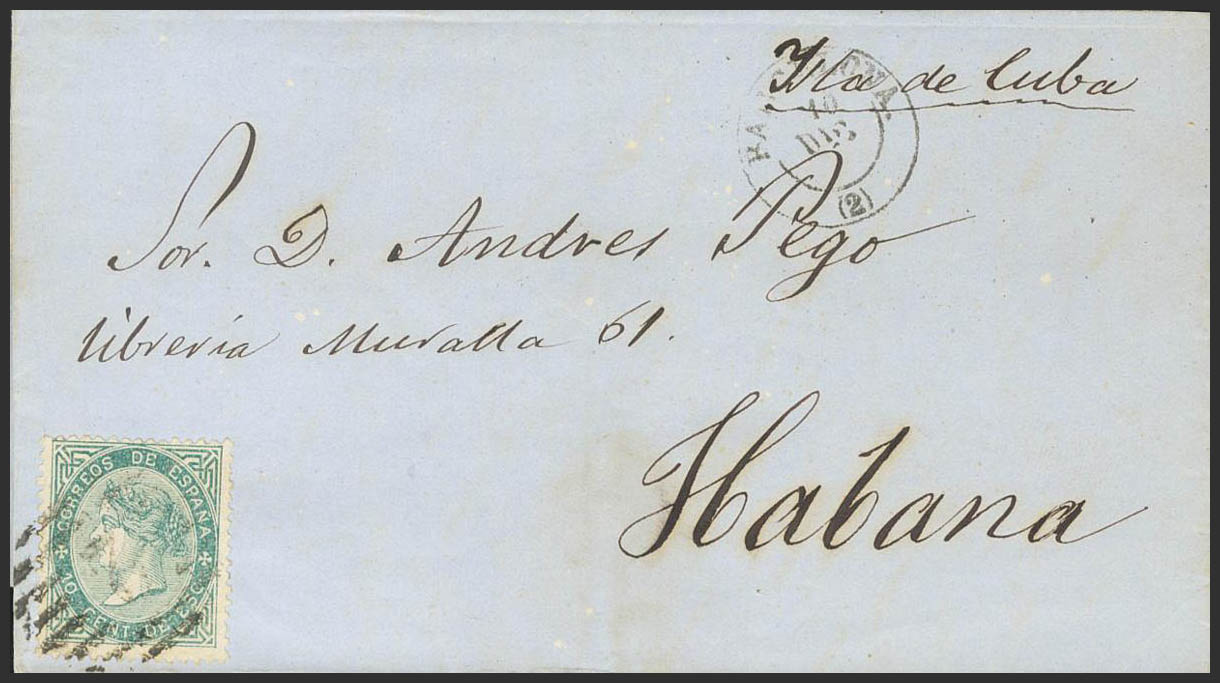 Isla de Cuba
BARCELONA
10
DIC
(2)
Sor. D. Andres Pego
librería Muralla 61.
Habana
CORREOS DE ESPAÑA
10 CENT. DE ESCO